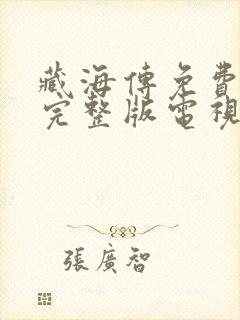 藏海傳免費
完整版電視
張廣智